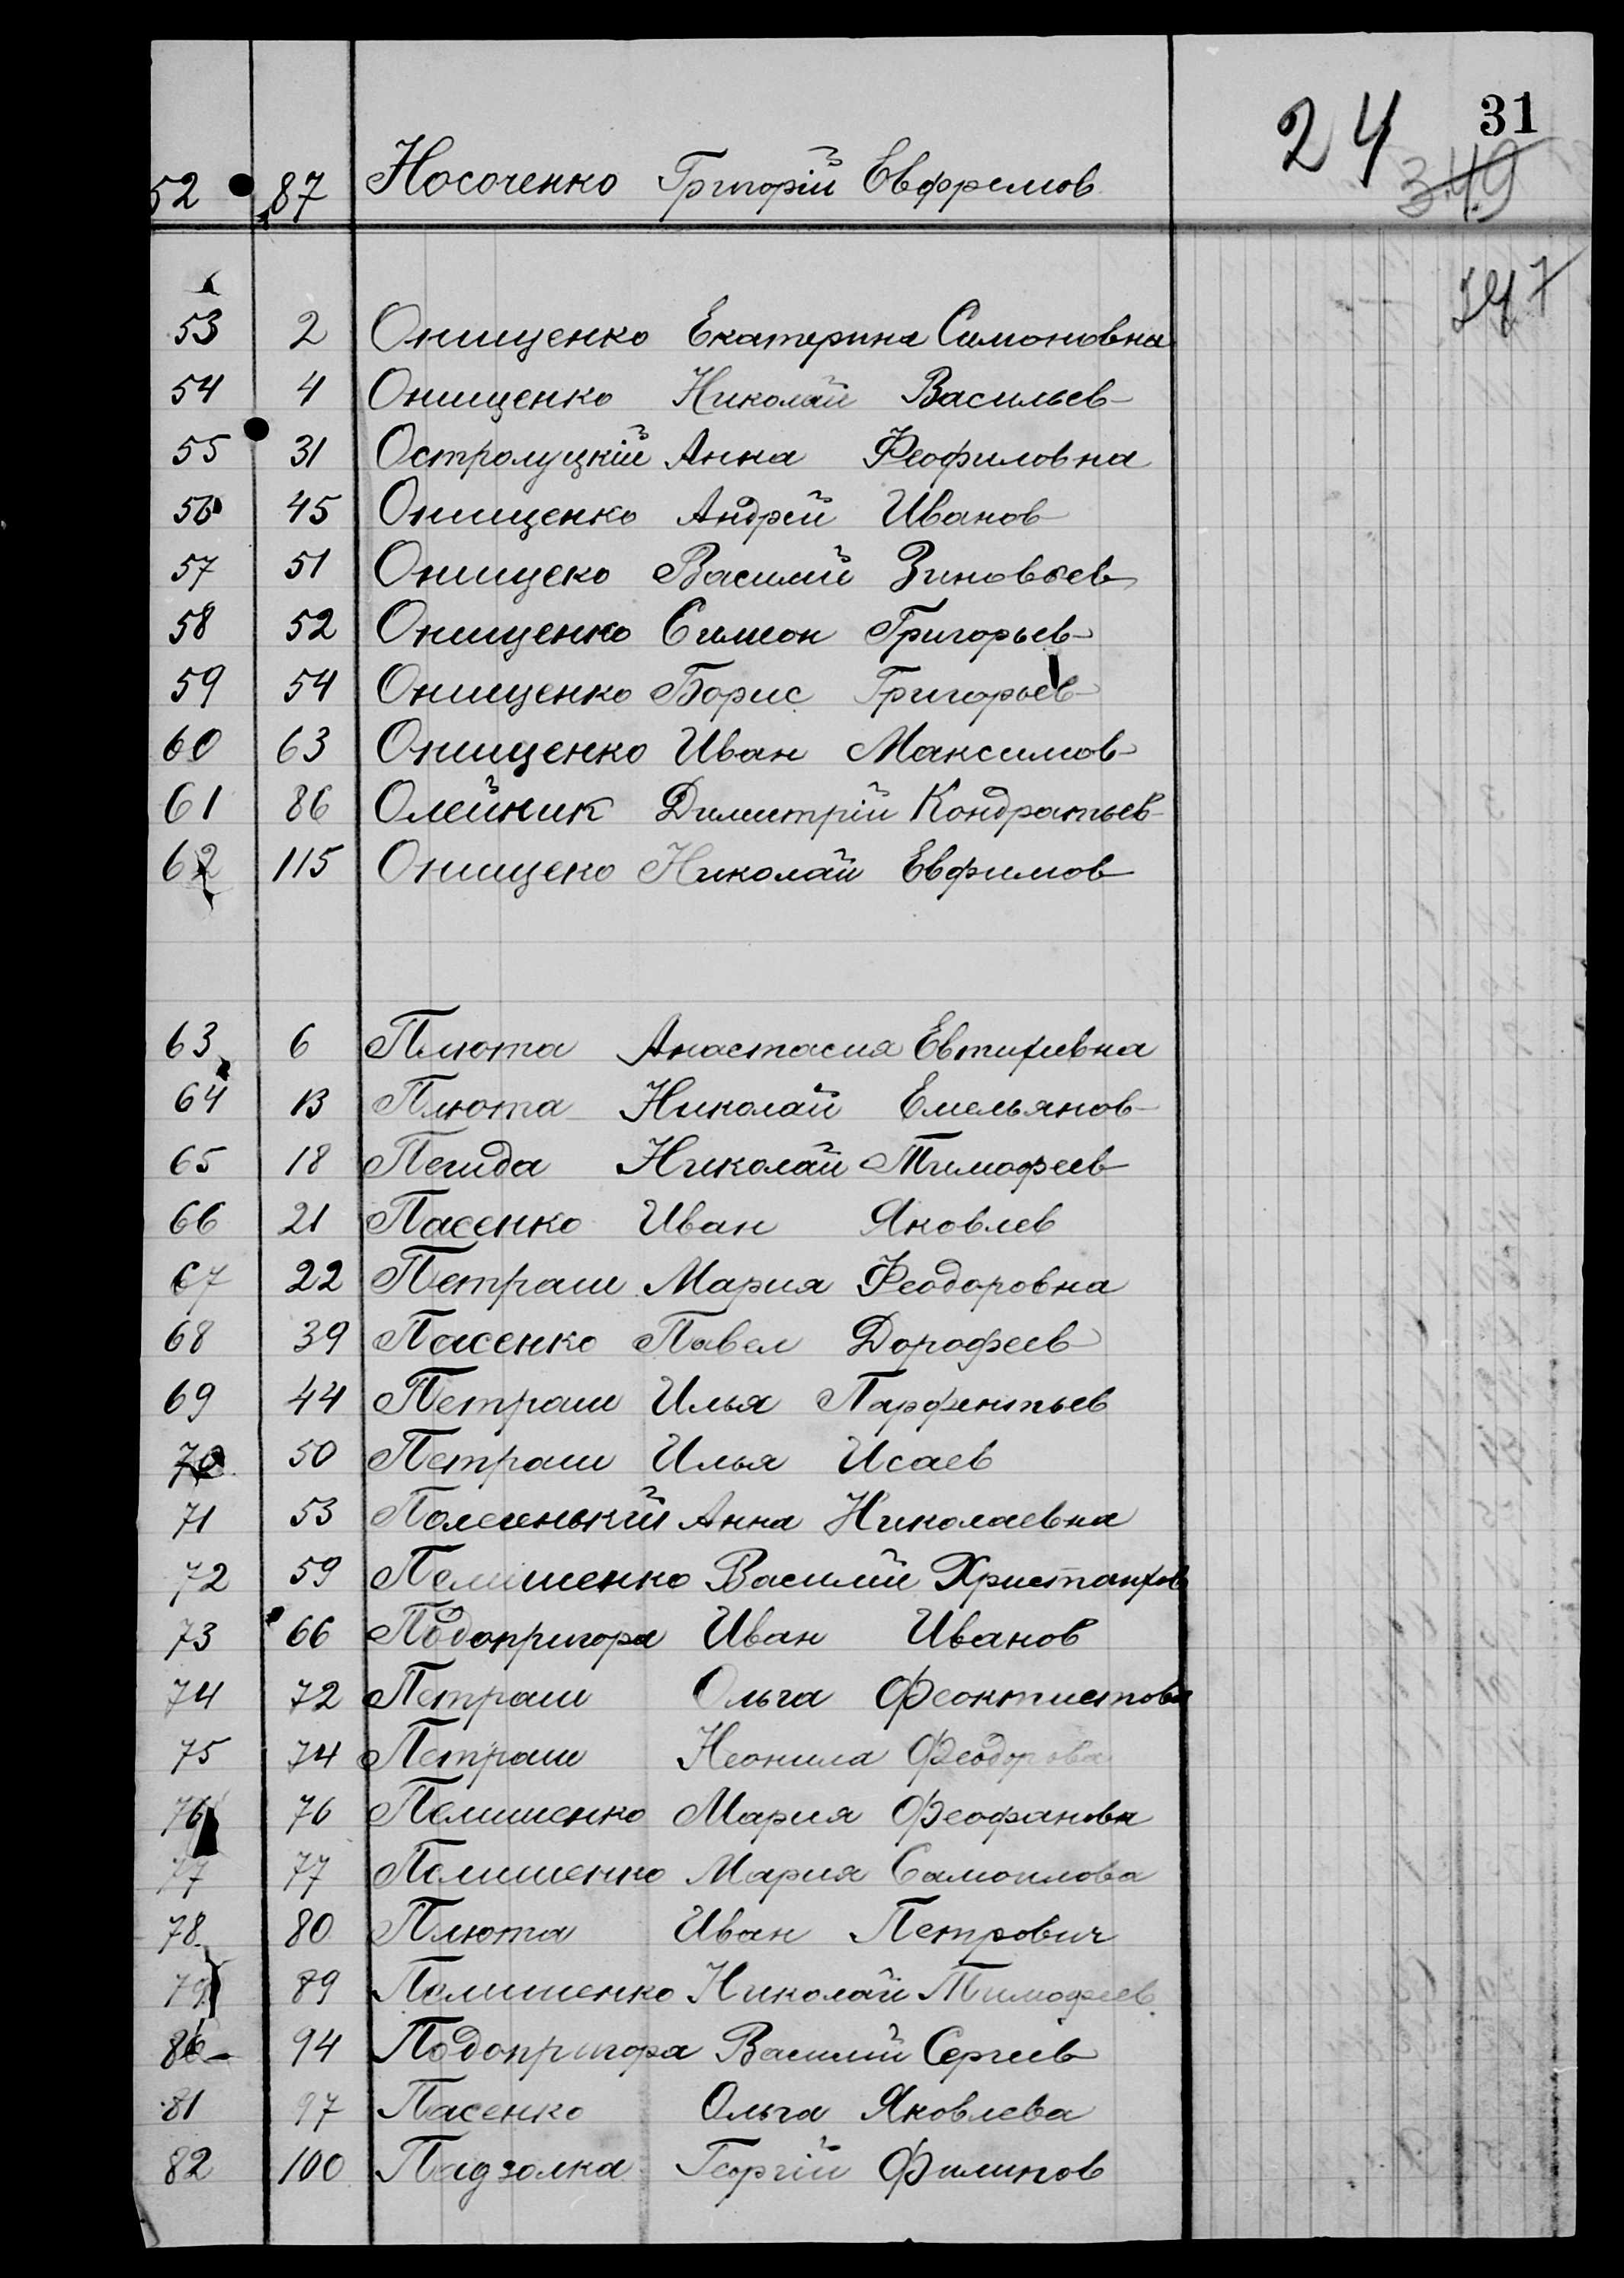 24 31
349
52 87 Носоченко Григорій Евфремов
747
53 2 Онищенко Екатерина Симоновна
54 4 Онищенко Николай Васильев
55 31 Остролуцкій Анна Феофиловна
56 45 Онищенко Андрей Иванов
57 51 Онищеко Василий Зиновьев
58 52 Онищенко Симеон Григорьев
59 54 Онищенко Борис Григорьев
60 63 Онищенко Иван Максимов
61 86 Олейник Димитрій Кондратьев
62 115 Онищеко Николай Евфимов
63 6 Плюта Анастасия Евтихивна
64 13 Плюта Николай Емельянов
65 18 Николай Тимофеев
66 21 Пасенко Иван Яковлев
67 22 Петраш Мария Феодоровна
68 39 Пасенко Павел Дорофеев
69 44 Петраш Илья Парфентьев
70 50 Петраш Илья Исаев
71 53 Анна Николаевна
72 59 Василий
73 66 Подопригора Иван Иванов
74 72 Петраш Ольга Феоктистова
75 74 Петраш Неонила Феодорова
76 76 Пелишенко Мария Феофанова
77 77 Пелишенко Мария Самоилова
78 80 Плюта Иван Петрович
79 89 Пелишенко Николай Тимофеев
80 94 Подопригора Василий Сергеев
81 97 Пасенко Ольга Яковлева
82 100 Георгій Филипов